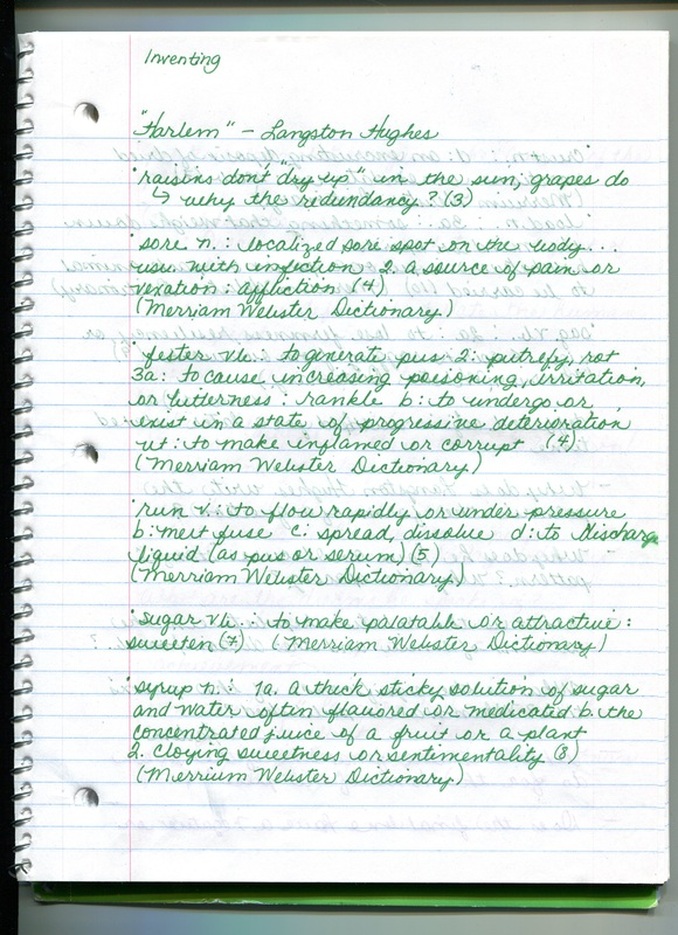 Inventing
"Harlem" – Langston Hughes
"raisins dont "dry up" in the sun, grapes do
↳ why the redundancy? (3)
"sore n.: localized sore spot on the body...
usu. with infection 2. a source of pain or
vexation: affliction (4)
(Merriam Webster Dictionary)
"fester vb.: to generate pus 2: putrefy, rot
3a: to cause increasing poisoning, irritation,
or bitterness: rankle b: to undergo or
exist in a state of progressive deterioration
vt: to make inflamed or corrupt (4)
(Merriam Webster Dictionary)
"run v.: to flow rapidly or under pressure
b: melt fuse c: spread, dissolve d: to discharge
liquid (as pus or serum) (5)
(Merriam Webster Dictionary)
"sugar vb.: to make palatable or attractive:
sweeten (7) (Merriam Webster Dictionary)
"syrup n.: 1a. a thick sticky solution of sugar
and water often flavored or medicated b. the
concentrated juice of a fruit or a plant
2. cloying sweetness or sentimentality (8)
(Merrium Webster Dictionary)